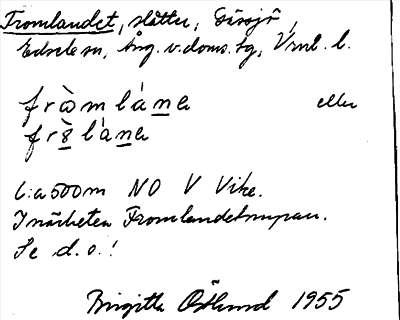 Fromlandet, slåtter, Gåssjö,
Edsele sn, Ång. v. doms. tg, Vrnl. l.
fròmlána eller
frò̱lána
C:a 500 m NO V Vike.
I närheten Fromlandet
Se d.o.!
Birgitta Östlund 1955